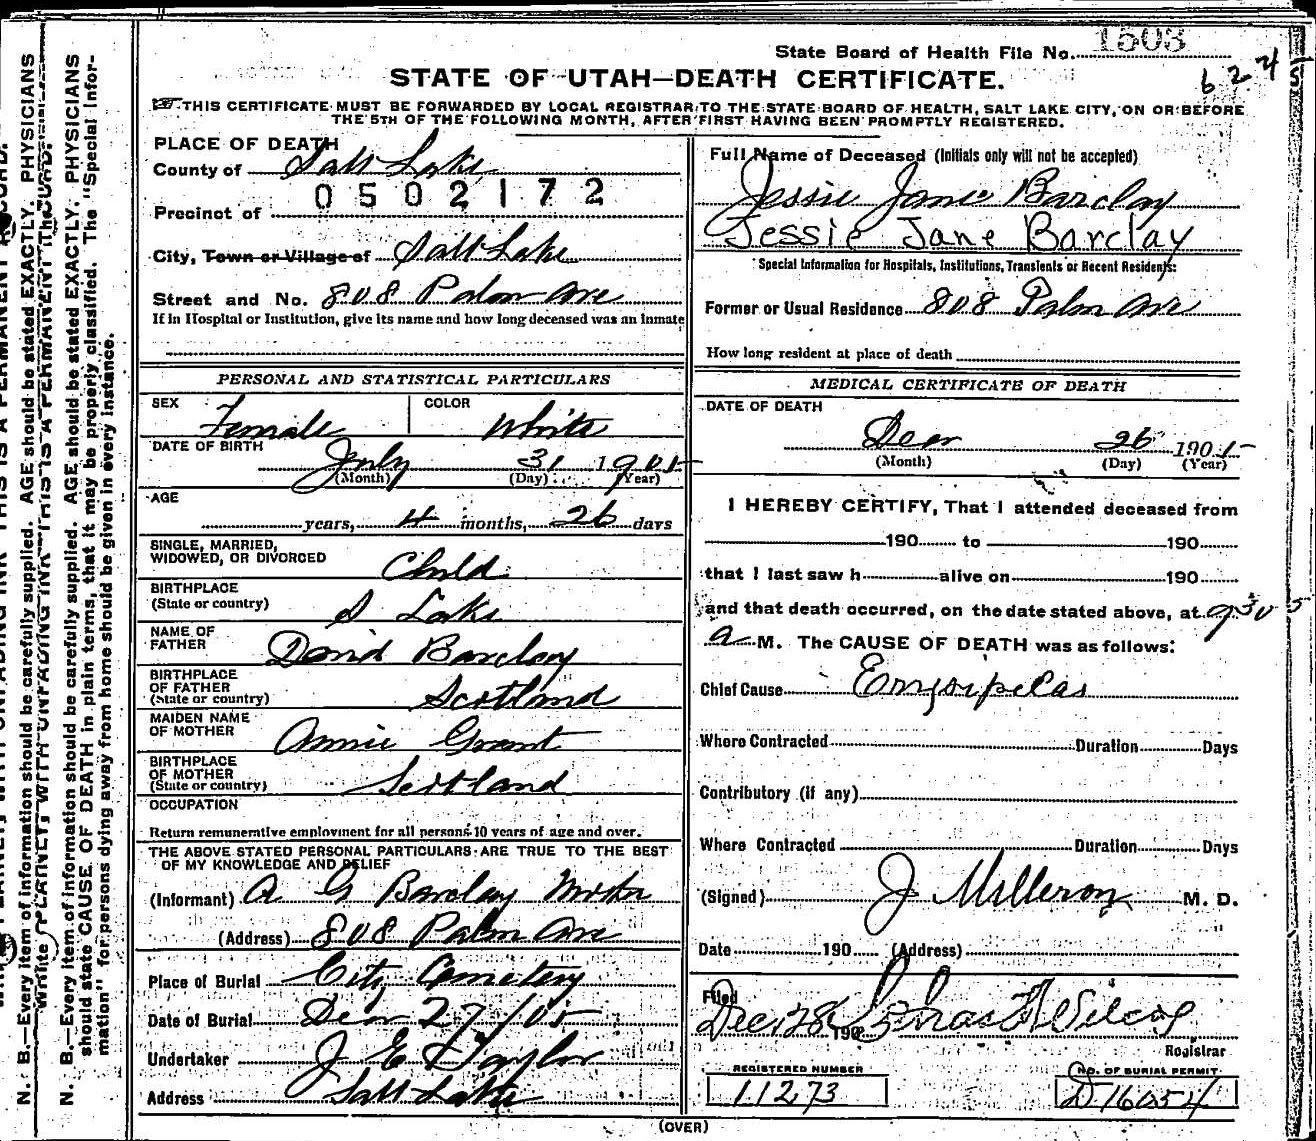 State Board of Health File No. 1503
6 2 4 5
STATE OF UTAH—DEATH CERTIFICATE.
THIS CERTIFICATE MUST BE FORWARDED BY LOCAL REGISTRAR TO THE STATE BOARD OF HEALTH, SALT LAKE CITY, ON OR BEFORE
THE 5TH OF THE FOLLOWING MONTH, AFTER FIRST HAVING BEEN PROMPTLY REGISTERED.
PLACE OF DEATH
County of Salt Lake
0502172
Precinct of
City, Town or Village of Salt Lake
Street and No. 808 Palm Ave
If in Hospital or Institution, give its name and how long deceased was an inmate
PERSONAL AND STATISTICAL PARTICULARS
SEX Female COLOR White
DATE OF BIRTH July 31 1905
(Month) (Day) (Year)
AGE
years, 4 months, 26 days
SINGLE, MARRIED,
WIDOWED, OR DIVORCED Child
BIRTHPLACE
(State or country) S Lake
NAME OF
FATHER David Barclay
BIRTHPLACE
OF FATHER
(State or country) Scotland
MAIDEN NAME
OF MOTHER Annie Grant
BIRTHPLACE
OF MOTHER
(State or country) Scotland
OCCUPATION
Return remunerative employment for all persons 10 years of age and over.
THE ABOVE STATED PERSONAL PARTICULARS ARE TRUE TO THE BEST
OF MY KNOWLEDGE AND BELIEF
(Informant) A G Barclay Mother
(Address) 808 Palm Ave
Place of Burial City Cemetery
Date of Burial Dec 27/05
Undertaker J E Taylor
Address Salt Lake
Full Name of Deceased (Initials only will not be accepted)
Jessie Jane Barclay
Jessie Jane Barclay
Special Information for Hospitals, Institutions, Transients or Recent Residents:
Former or Usual Residence 808 Palm Ave
How long resident at place of death
MEDICAL CERTIFICATE OF DEATH
DATE OF DEATH
Dec 26 1905
(Month) (Day) (Year)
I HEREBY CERTIFY, That I attended deceased from
190 to 190
that I last saw h alive on 190
and that death occurred, on the date stated above, at 9 30
a M. The CAUSE OF DEATH was as follows:
Chief Cause Erysipelas
Where Contracted Duration Days
Contributory (if any)
Where Contracted Duration Days
(Signed) J M. D.
Date 190 (Address)
Filed
Dec 28 190 Wilcox
Registrar
REGISTERED NUMBER
11273
NO. OF BURIAL PERMIT
D 16054
(OVER)
N. B.—Every item of information should be carefully supplied. AGE should be stated EXACTLY. PHYSICIANS
Write PLAINLY WITH UNFADING INK THIS IS A PERMANENT RECORD.
N. B.—Every item of information should be carefully supplied. AGE should be stated EXACTLY. PHYSICIANS
should state CAUSE OF DEATH in plain terms, that it may be properly classified. The "Special Infor-
mation" for persons dying away from home should be given in every instance.